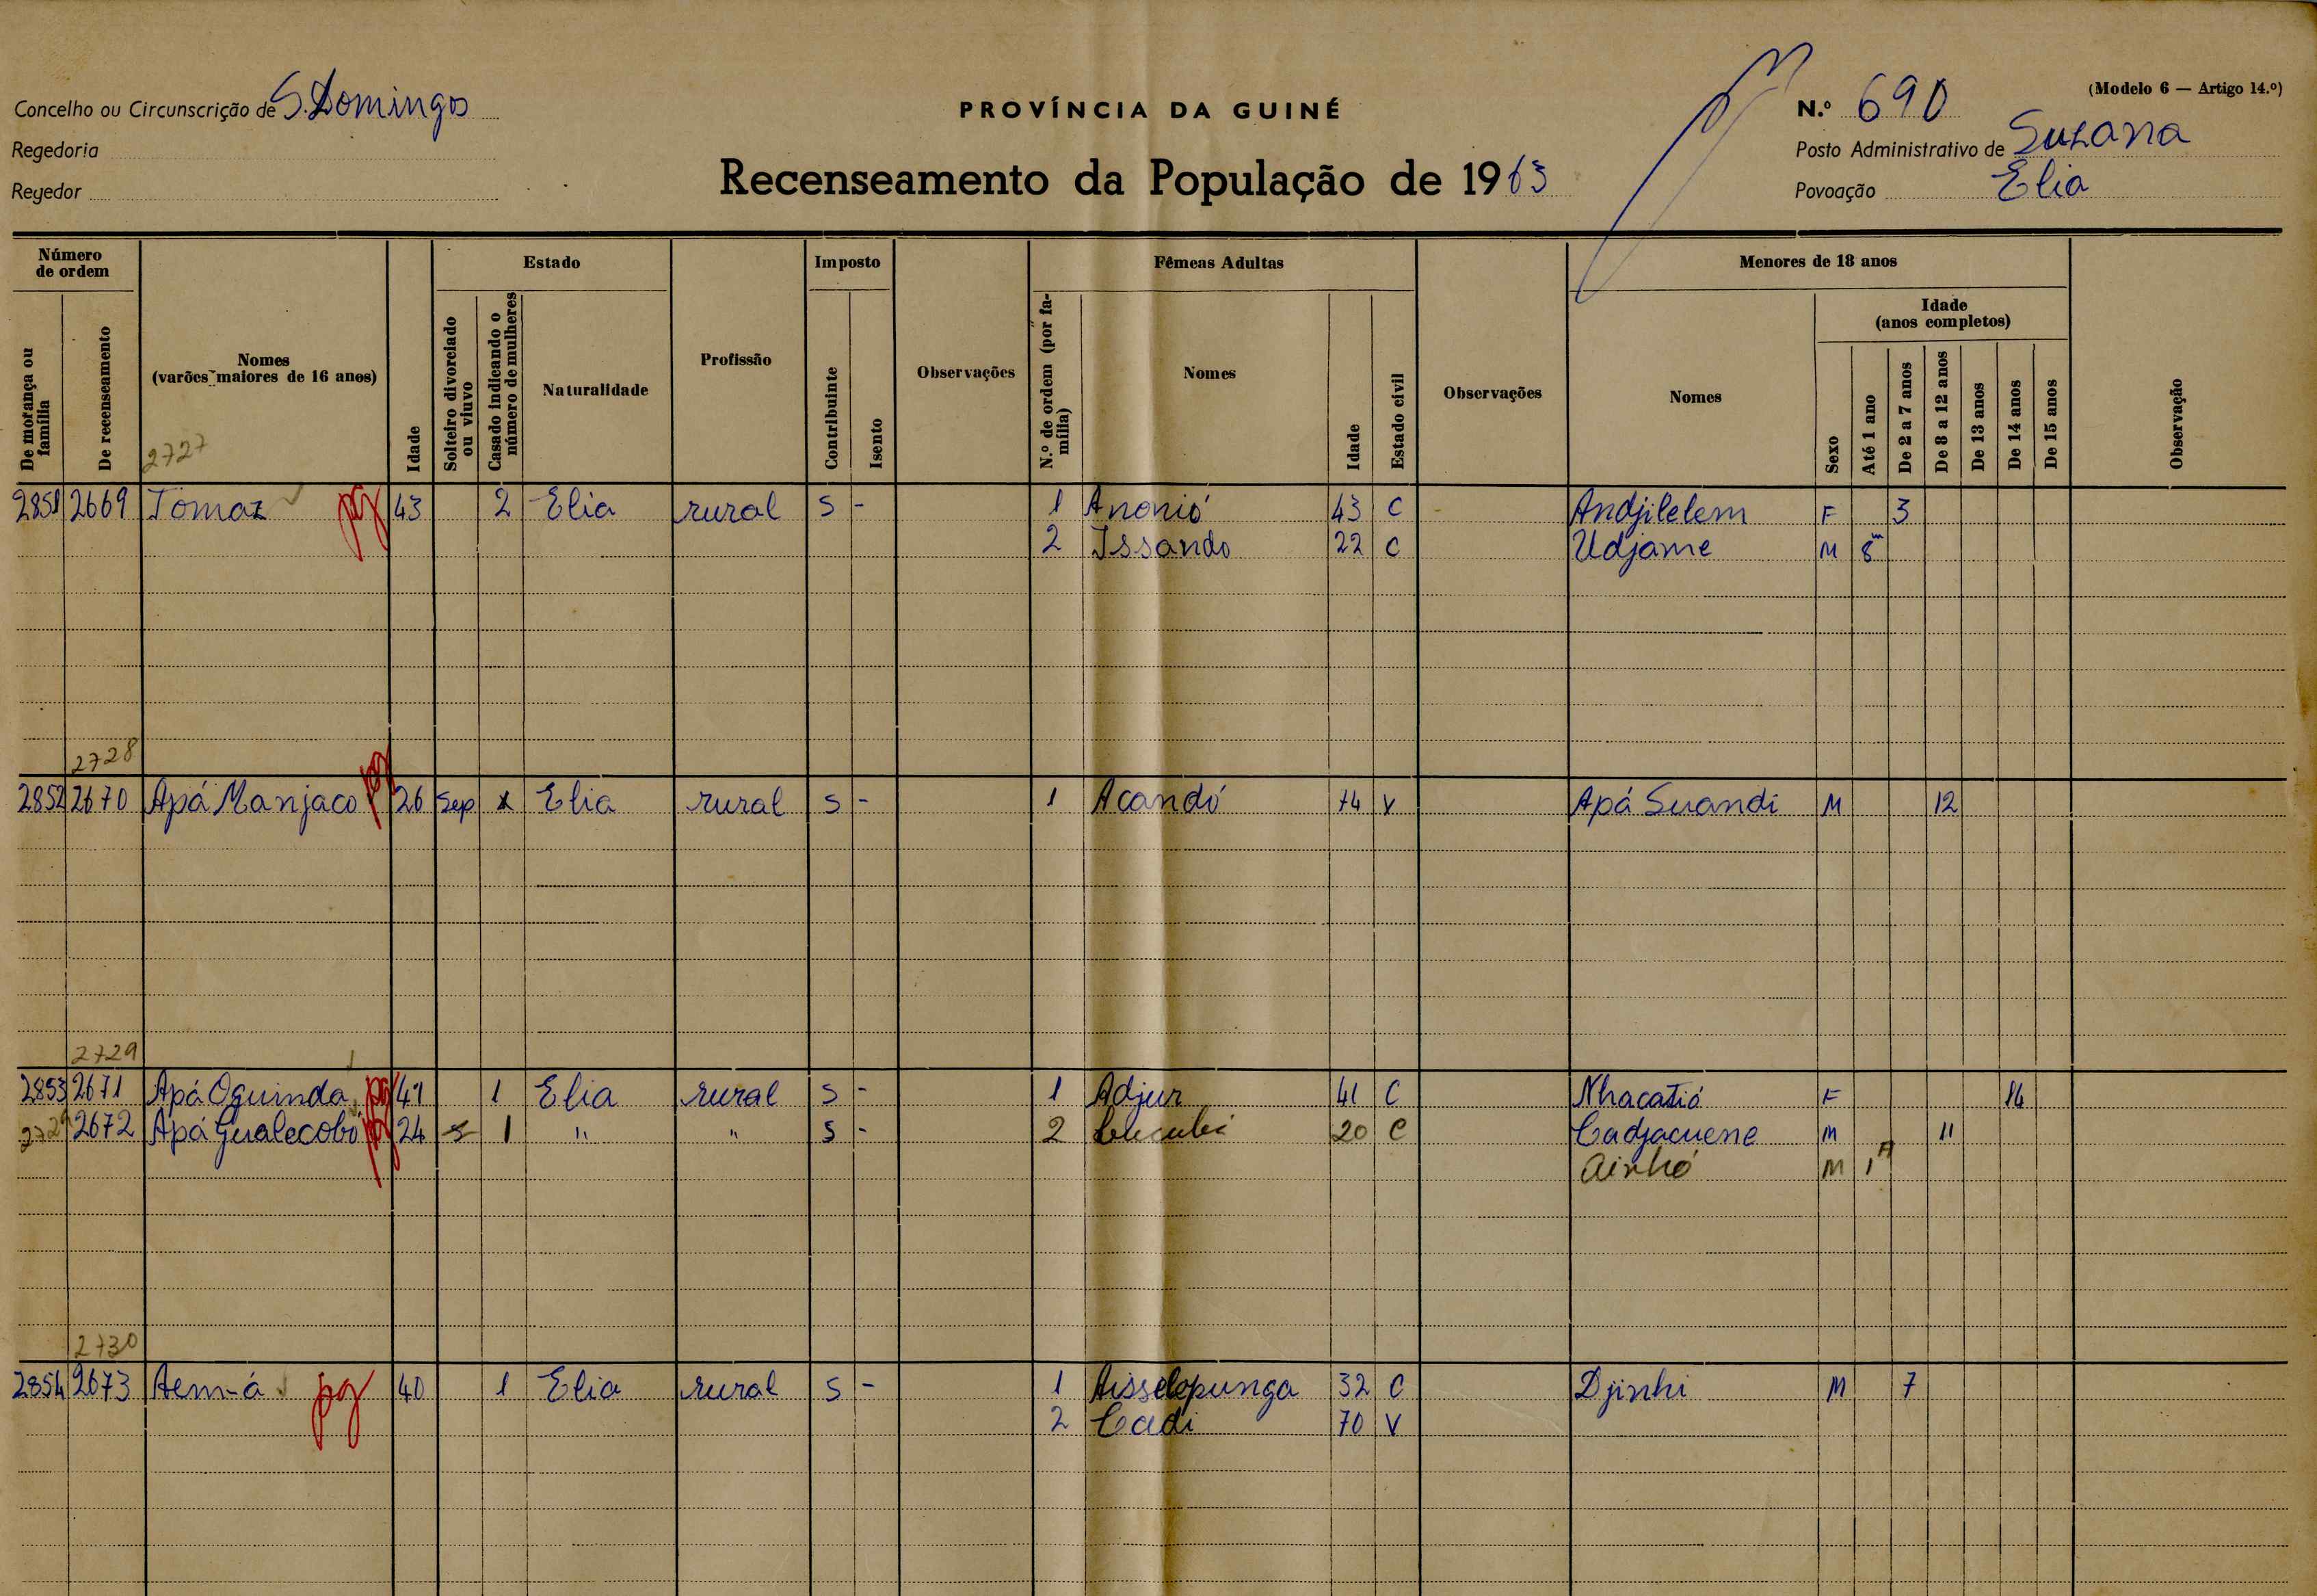 (Modelo 6 — Artigo 14.º)
Concelho ou Circunscrição de S. Domingos
PROVÍNCIA DA GUINÉ
N.º 690
Regedoria
Posto Administrativo de Suzana
Regedor
Recenseamento da População de 1963
Povoação Elia
Número de ordem
De morança ou família
De recenseamento
Nomes
(varões maiores de 16 anos)
Idade
Estado
Solteiro divorciado ou viuvo
Casado indicando o número de mulheres
Naturalidade
Profissão
Imposto
Contribuinte
Isento
Observações
Fêmeas Adultas
N.º de ordem (por família)
Nomes
Idade
Estado civil
Observações
Menores de 18 anos
Nomes
Sexo
Idade
(anos completos)
Até 1 ano
De 2 a 7 anos
De 8 a 12 anos
De 13 anos
De 14 anos
De 15 anos
Observação
2727
2851 2669 Tomaz pg 43 2 Elia rural S - 1 Anonió 43 C Andjilelem F 3
2 Issando 22 C Udjame M 8m
2728
2852 2670 Apá Manjaco pg 26 Sep x Elia rural S - 1 Acandó 74 V Apá Suandi M 12
2729
2853 2671 Apá Oguinda pg 41 1 Elia rural S - 1 Adjur 41 C Nhacatió F 14
2672 Apá Gualecobó pg 24 s 1 " " S - 2 20 C Cadjacuene M 11
Ainhó M 1A
2730
2854 2673 Aem-á pg 40 1 Elia rural S - 1 Aisselopunga 32 C Djinhi M 7
2 Cadi 70 V